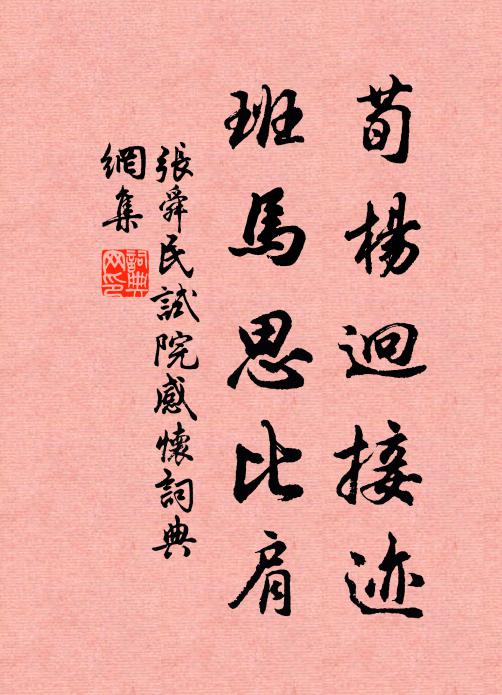 荀楊迥接迹
班馬思比肩
張舜民試院感懷詞典
網集
詞典
网印